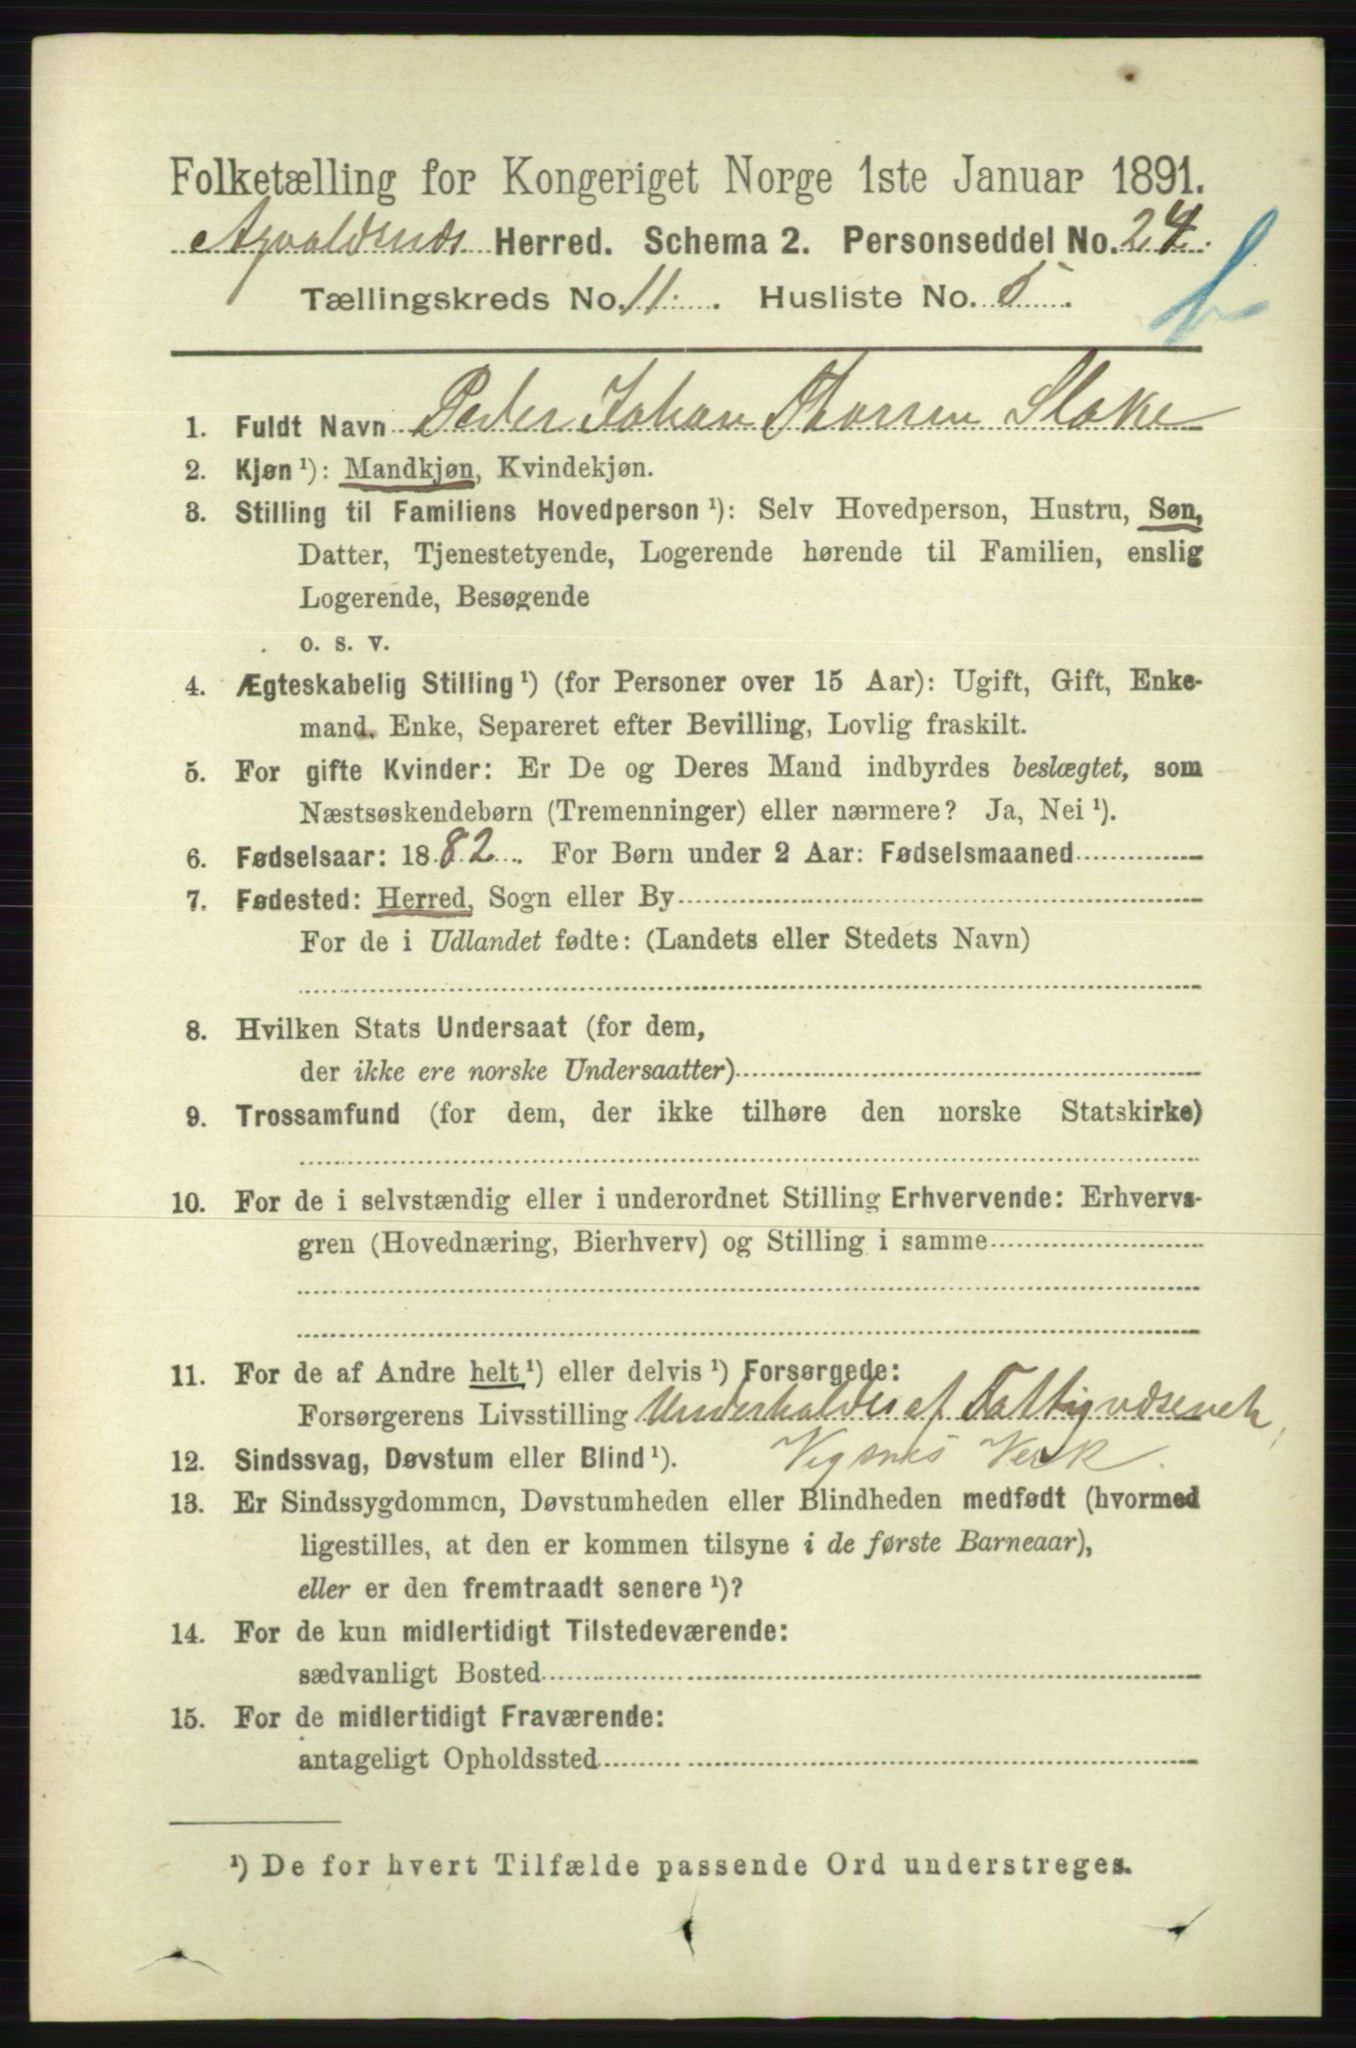 Folketælling for Kongeriget Norge 1ste Januar 1891.
Avaldsnds Herred. Schema 2. Personseddel No. 24.
Tællingskreds No. 11. Husliste No. 5.
1. Fuldt Navn Peder Johan Thorsen Stoke
2. Kjøn ¹): Mandkjøn, Kvindekjøn.
3. Stilling til Familiens Hovedperson ¹): Selv Hovedperson, Hustru, Søn,
Datter, Tjenestetyende, Logerende hørende til Familien, enslig
Logerende, Besøgende
o. s. v.
4. Ægteskabelig Stilling ¹) (for Personer over 15 Aar): Ugift, Gift, Enke-
mand, Enke, Separeret efter Bevilling, Lovlig fraskilt.
5. For gifte Kvinder: Er De og Deres Mand indbyrdes beslægtet, som
Næstsøskendebørn (Tremenninger) eller nærmere? Ja, Nei ¹).
6. Fødselsaar: 1882. For Børn under 2 Aar: Fødselsmaaned
7. Fødested: Herred, Sogn eller By
For de i Udlandet fødte: (Landets eller Stedets Navn)
8. Hvilken Stats Undersaat (for dem,
der ikke ere norske Undersaatter)
9. Trossamfund (for dem, der ikke tilhøre den norske Statskirke)
10. For de i selvstændig eller i underordnet Stilling Erhvervende: Erhvervs-
gren (Hovednæring, Bierhverv) og Stilling i samme
11. For de af Andre helt ¹) eller delvis ¹) Forsørgede:
Forsørgerens Livsstilling Underholdes af Fattigvæsenet,
Vigsnes Verk.
12. Sindssvag, Døvstum eller Blind ¹).
13. Er Sindssygdommen, Døvstumheden eller Blindheden medfødt (hvormed
ligestilles, at den er kommen tilsyne i de første Barneaar),
eller er den fremtraadt senere ¹)?
14. For de kun midlertidigt Tilstedeværende:
sædvanligt Bosted
15. For de midlertidigt Fraværende:
antageligt Opholdssted
¹) De for hvert Tilfælde passende Ord understreges.